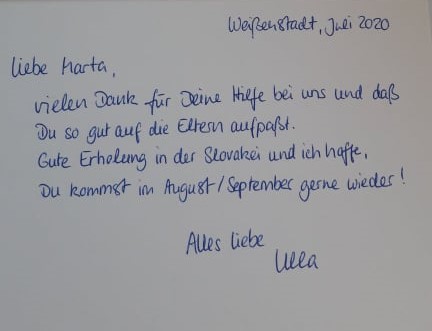 Weißenstadt, Juli 2020
Liebe Marta,
vielen Dank für Deine Hilfe bei uns und daß
Du so gut auf die Eltern aufpaßt.
Gute Erholung in der Slovakei und ich hoffe,
Du kommst im August/September gerne wieder!
Alles liebe
Ulla